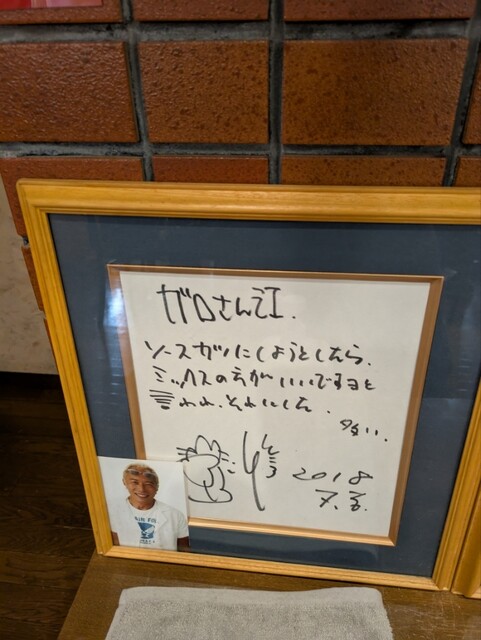 ガロさんで
ソースカツにしようとしたら、
ミックスの方がいいですよと
言われ、それにした。
2018
7.